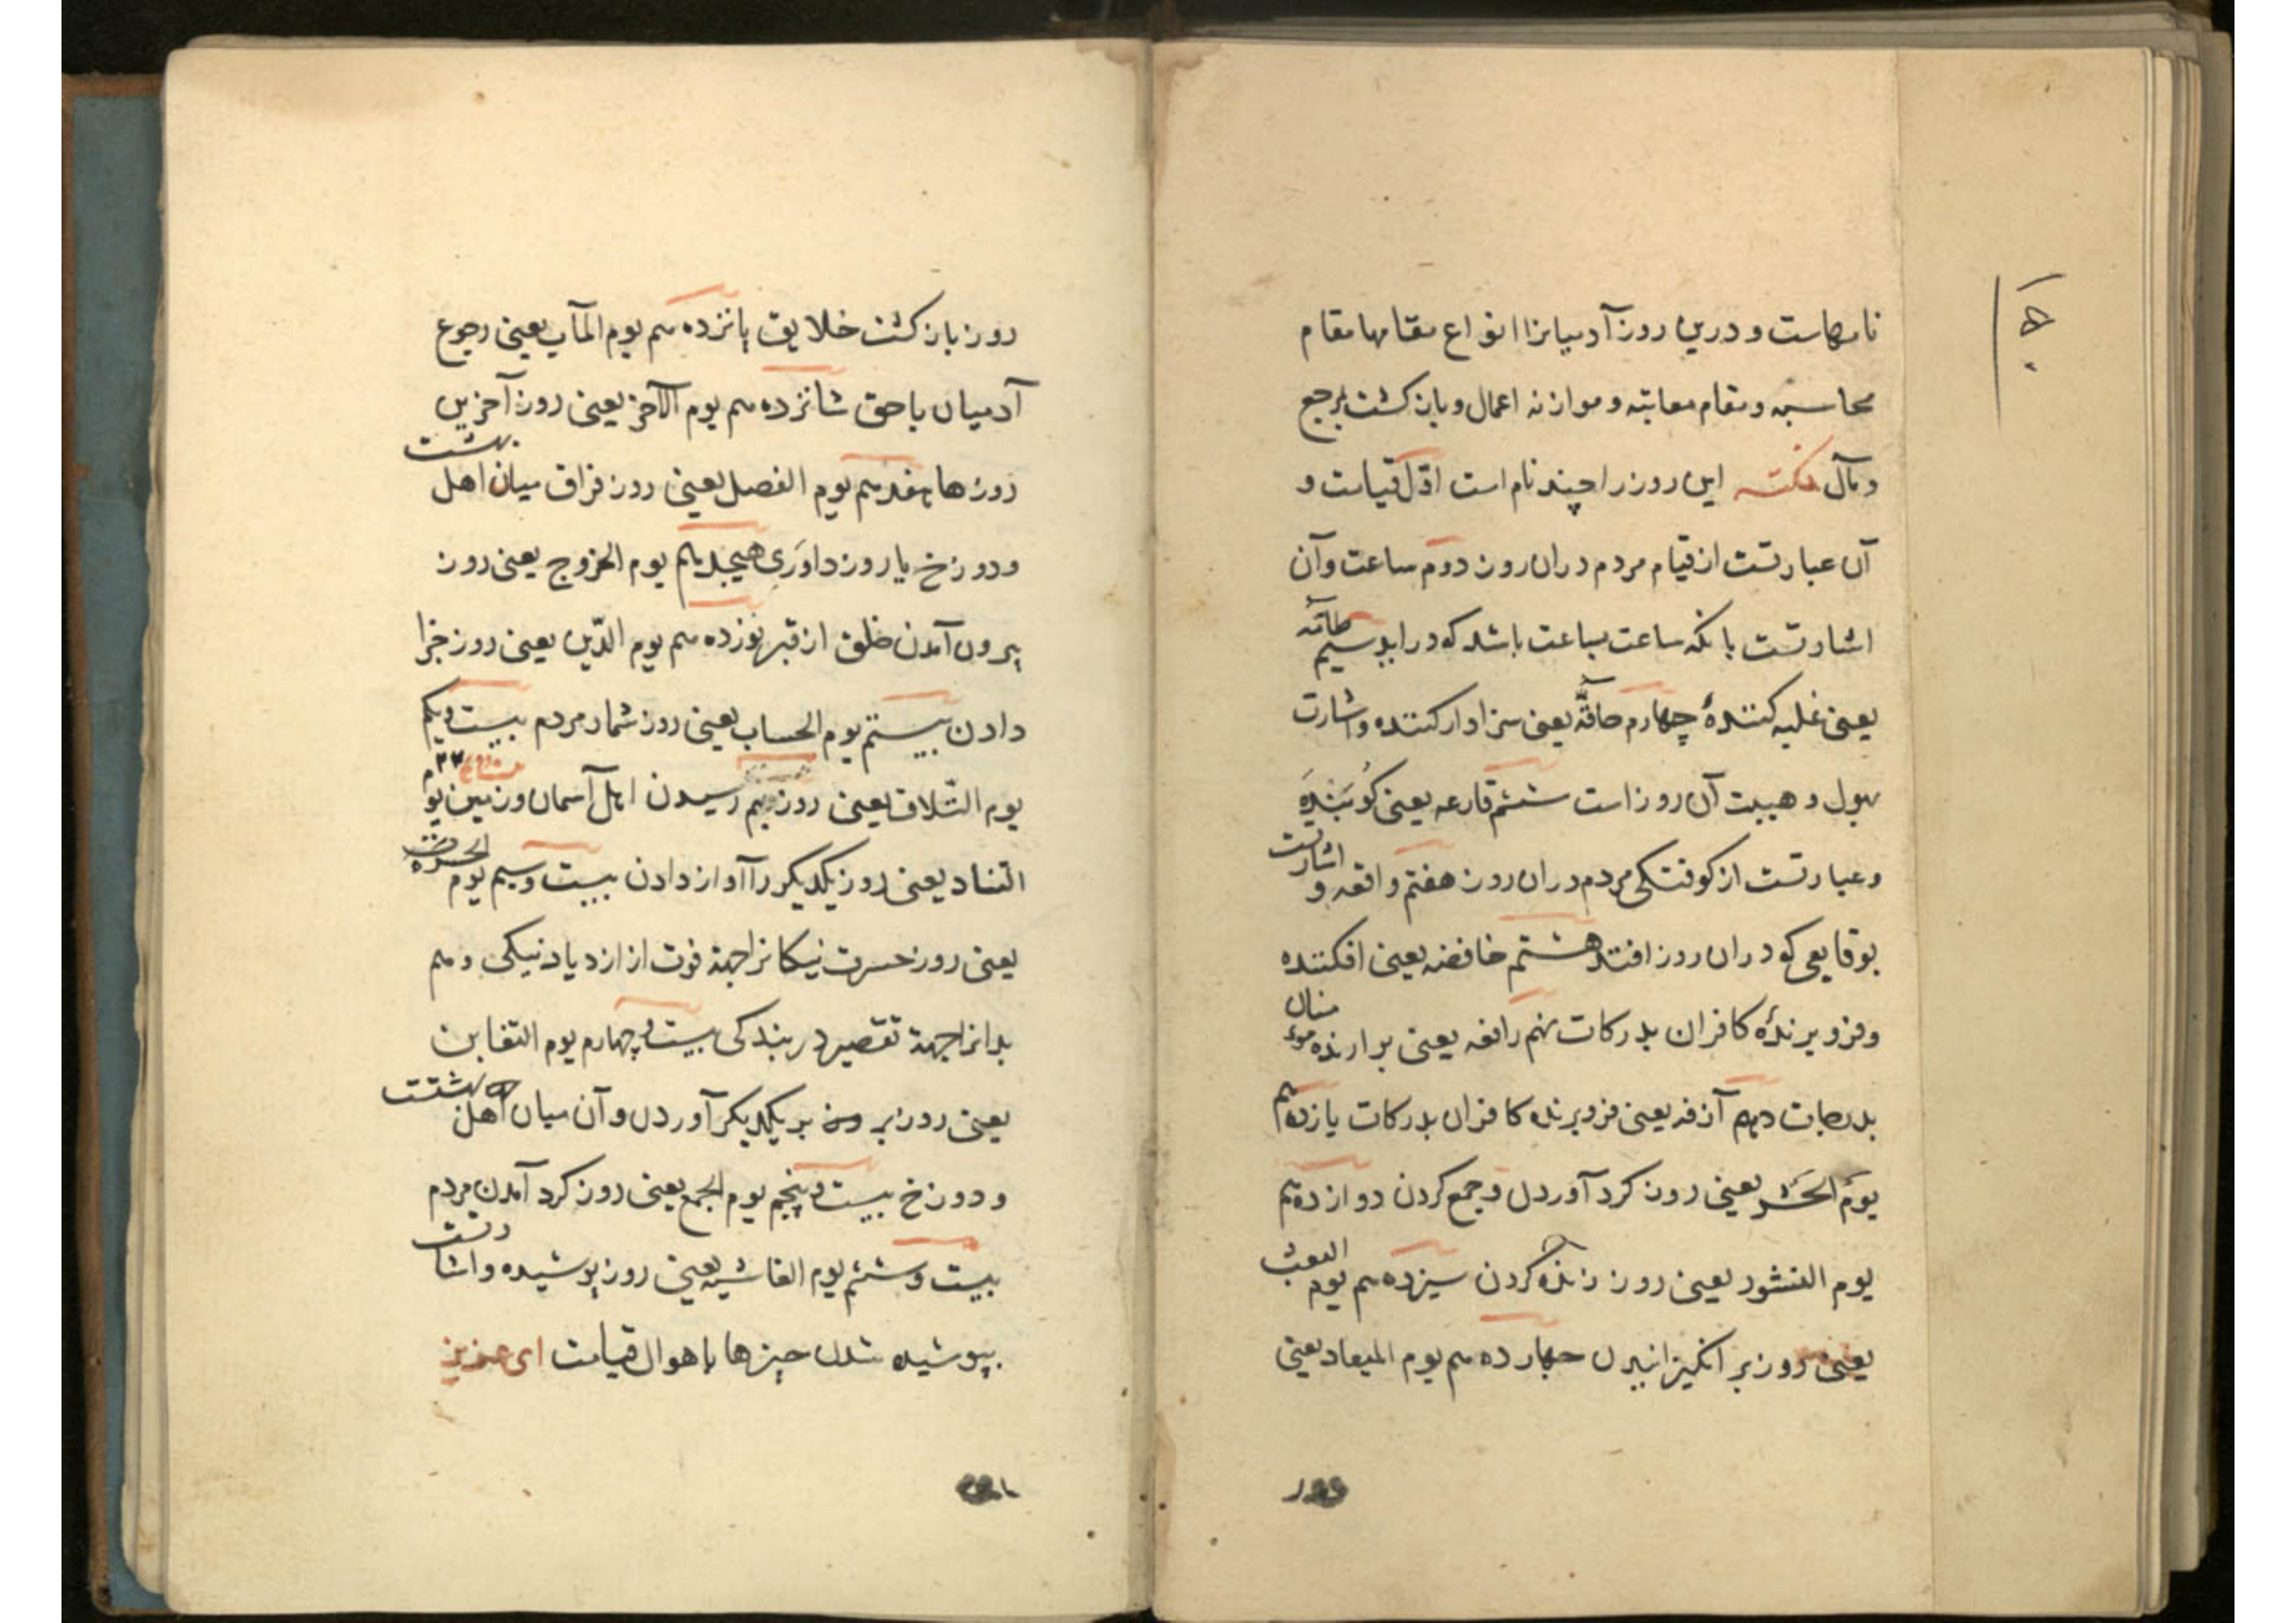 نامهاست و درین روز آدمیانرا انواع مقامها مقام
محاسبه و مقام معاتبه و موازنه اعمال و باز کشت بمرجع
و مآل نکته این روز را چند نام است اوّل قیامت و
آن عبارتست از قیام مردم دران روز دوم ساعت وآن
اشارتست بانکه ساعت بساعت باشد که دراید سیم طامّه
یعنی غلبه کننده چهارم حاقّه یعنی سزاوار کننده و اشارت
بهول و هیبت آن روز است ششم قارعه یعنی کوبَنْدَه
وعبارتست از کوفتکی مردم دران روز هفتم واقعه و اشارتست
بوقایعی که دران روز افتد هشتم خافضه یعنی افکننده
وفرو برندهٔ کافران بدرکات نهم رافعه یعنی برارنده مؤمنان
بدرجات دهم آزفه یعنی فرو برنده کافران بدرکات یازدهم
یومَ الحَشر یعنی روز کرد آوردن و جمع کردن دوازدهم
یوم النشور یعنی روز زنده کردن سیزدهم یوم البعث
یعنی روز بر انکیزانیدن چهاردهم یوم المیعاد یعنی
۱۵۰
روز باز کشت خلایق پانزدهم یوم المآب یعنی رجوع
آدمیان باحق شانزدهم یوم الآخر یعنی روز آخرین
روزها هفدهم یوم الفصل یعنی روز فراق میان اهل بهشت
ودوزخ یا روز داوَری هیجدهم یوم الخروج یعنی روز
بیرون آمدن خلق از قبر نوزدهم یوم الدّین یعنی روز جزا
دادن بیستم یوم الحساب یعنی روز شمار مردم بیست ویکم
یوم التّلاق یعنی روز بهم رسیدن اهل آسمان وزمین یوم
التناد یعنی روز یکدیکر را آواز دادن بیست وسیم یوم الحسرة
یعنی روز حسرت نیکانرا جهة فوت از ازدیاد نیکی وهم
بدانرا جهة تقصیر در بندکی بیست وچهارم یوم التغابن
یعنی روز بر یکدیکر آوردن وآن میان اهل بهشتست
ودوزخ بیست وپنجم یوم الجمع یعنی روز کرد آمدن مردم
بیست وششم یوم الغاشیه یعنی روز پوشیده واشارتست
بپوشیده شدن چیزها باهوال قیامت ای عزیز